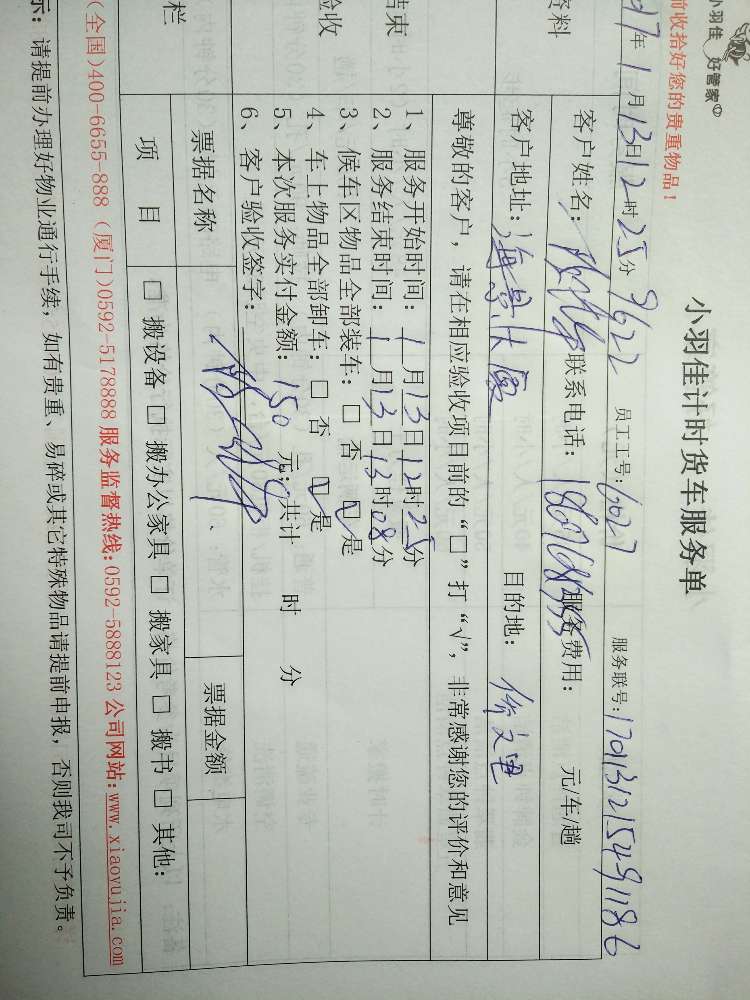 小羽佳
好管家
前收拾好您的贵重物品！
小羽佳计时货车服务单
17年1月13日12时25分 9622 员工工号：6027 服务联号：17011312154911186
资料
客户姓名： 联系电话： 服务费用： 元/车/趟
客户地址：海景 目的地：
尊敬的客户，请在相应验收项目前的“□”打“√”，非常感谢您的评价和意见
结束
验收
1、服务开始时间：1月13日12时25分
2、服务结束时间：1月13日13时08分
3、候车区物品全部装车：□ 否 ☑是
4、车上物品全部卸车：□ 否 ☑是
5、本次服务实付金额：150 元；共计 时 分
6、客户验收签字：
栏
票据名称 票据金额
项 目 □ 搬设备 □ 搬办公家具 □ 搬家具 □ 搬书 □ 其他：
(全国)400-6655-888 (厦门)0592-5178888 服务监督热线:0592-5888123 公司网站:www.xiaoyujia.com
示：请提前办理好物业通行手续，如有贵重、易碎或其它特殊物品请提前申报，否则我司不予负责。